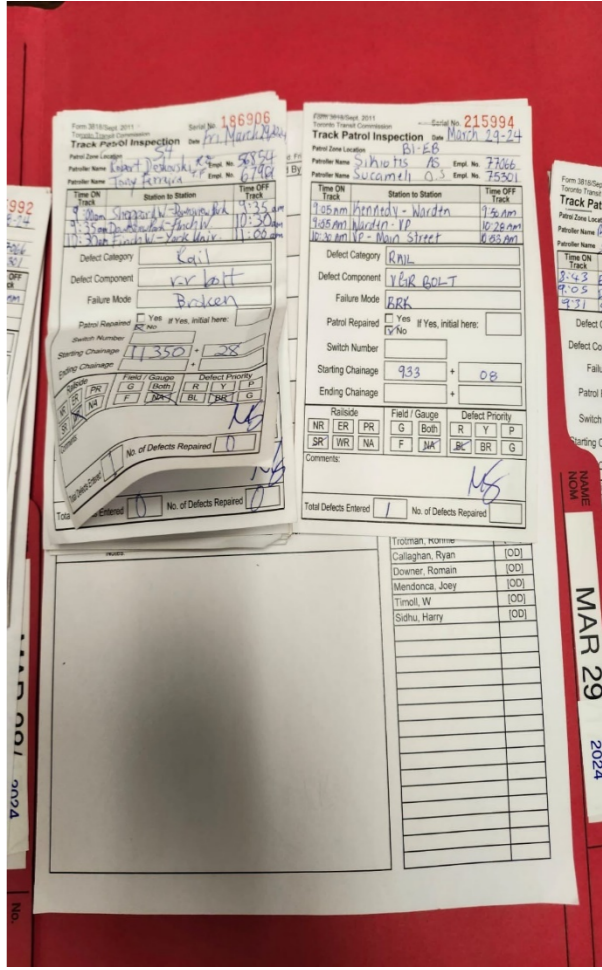 Form 3818/Sept. 2011
Toronto Transit Commission
Serial No. 186906
Track Patrol Inspection Date Fri March 29, 2024
Patrol Zone Location S4
Patroller Name Empl. No. 56854
Patroller Name Tony Ferreira TF Empl. No. 67961
Time ON Track Station to Station Time OFF Track
Sheppard W - Downsview Park 9:35am
9:35am Downsview Park - Finch W 10:30am
10:30am Finch W - York Univ. 11:00am
Defect Category Rail
Defect Component v-r bolt
Failure Mode Broken
Patrol Repaired Yes No If Yes, initial here:
Switch Number
Starting Chainage 11350 + 28
Ending Chainage +
Railside Field / Gauge Defect Priority
NR ER PR G Both R Y P
SR NA F NA BL BR G
Comments
Total Defects Entered 1 No. of Defects Repaired 0
Entered 0 No. of Defects Repaired 0
Form 3818/Sept. 2011
Toronto Transit Commission
Serial No. 215994
Track Patrol Inspection Date March 29-24
Patrol Zone Location B1-EB
Patroller Name Sikiotis AS Empl. No. 77066
Patroller Name Sucameli O.S Empl. No. 75301
Time ON Track Station to Station Time OFF Track
9:05am Kennedy - Warden 9:50 Am
9:55am Warden - VP 10:28am
10:30 AM VP - Main Street
Defect Category RAIL
Defect Component BOLT
Failure Mode BRK
Patrol Repaired Yes No If Yes, initial here:
Switch Number
Starting Chainage 933 + 08
Ending Chainage +
Railside Field / Gauge Defect Priority
NR ER PR G Both R Y P
SR WR NA F NA BL BR G
Comments:
Total Defects Entered 1 No. of Defects Repaired
Notes
Trotman, Ronnie
Callaghan, Ryan [OD]
Downer, Romain [OD]
Mendonca, Joey [OD]
Timoll, W [OD]
Sidhu, Harry [OD]
992
Time ON
Track
8:43
9:05
9:31
NAME
NOM
MAR 29
2024
2024
No.